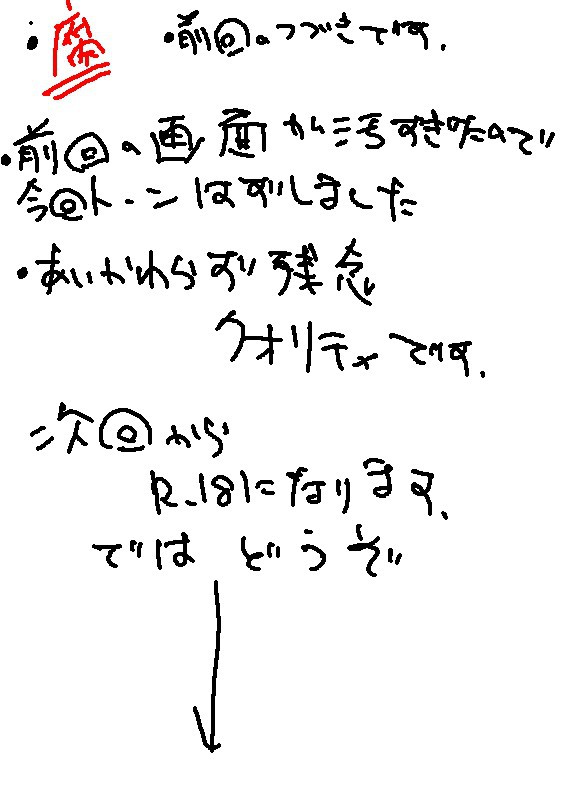 ・腐 ・前回のつづきです.
・前回の画面が汚すぎたので
今回トーンはずしました
・あいかわらず残念
クオリティです.
次回から
R-18になります.
ではどうぞ